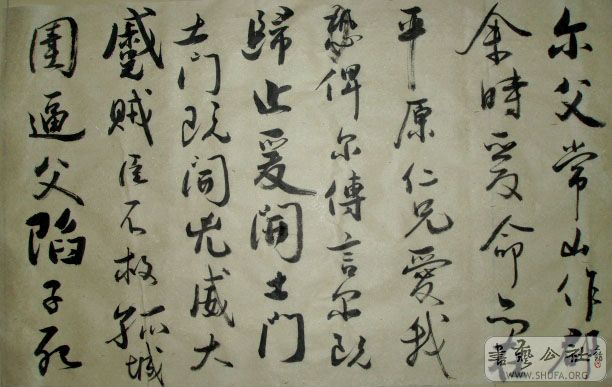 尔父常山作
余時受命亦
平原仁兄愛我
恐俾尔傳言尔既
歸止爰開土門
土門既開兇威大
蹙賊臣不救孤城
圍逼父陷子死
書藝公社
WWW.SHUFA.ORG